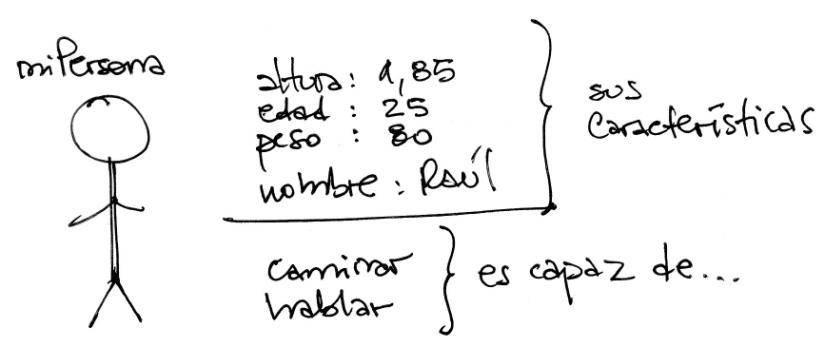 miPersona
altura: 1,85
edad : 25
peso : 80
nombre : Raúl
sus
características
caminar
hablar
es capaz de...